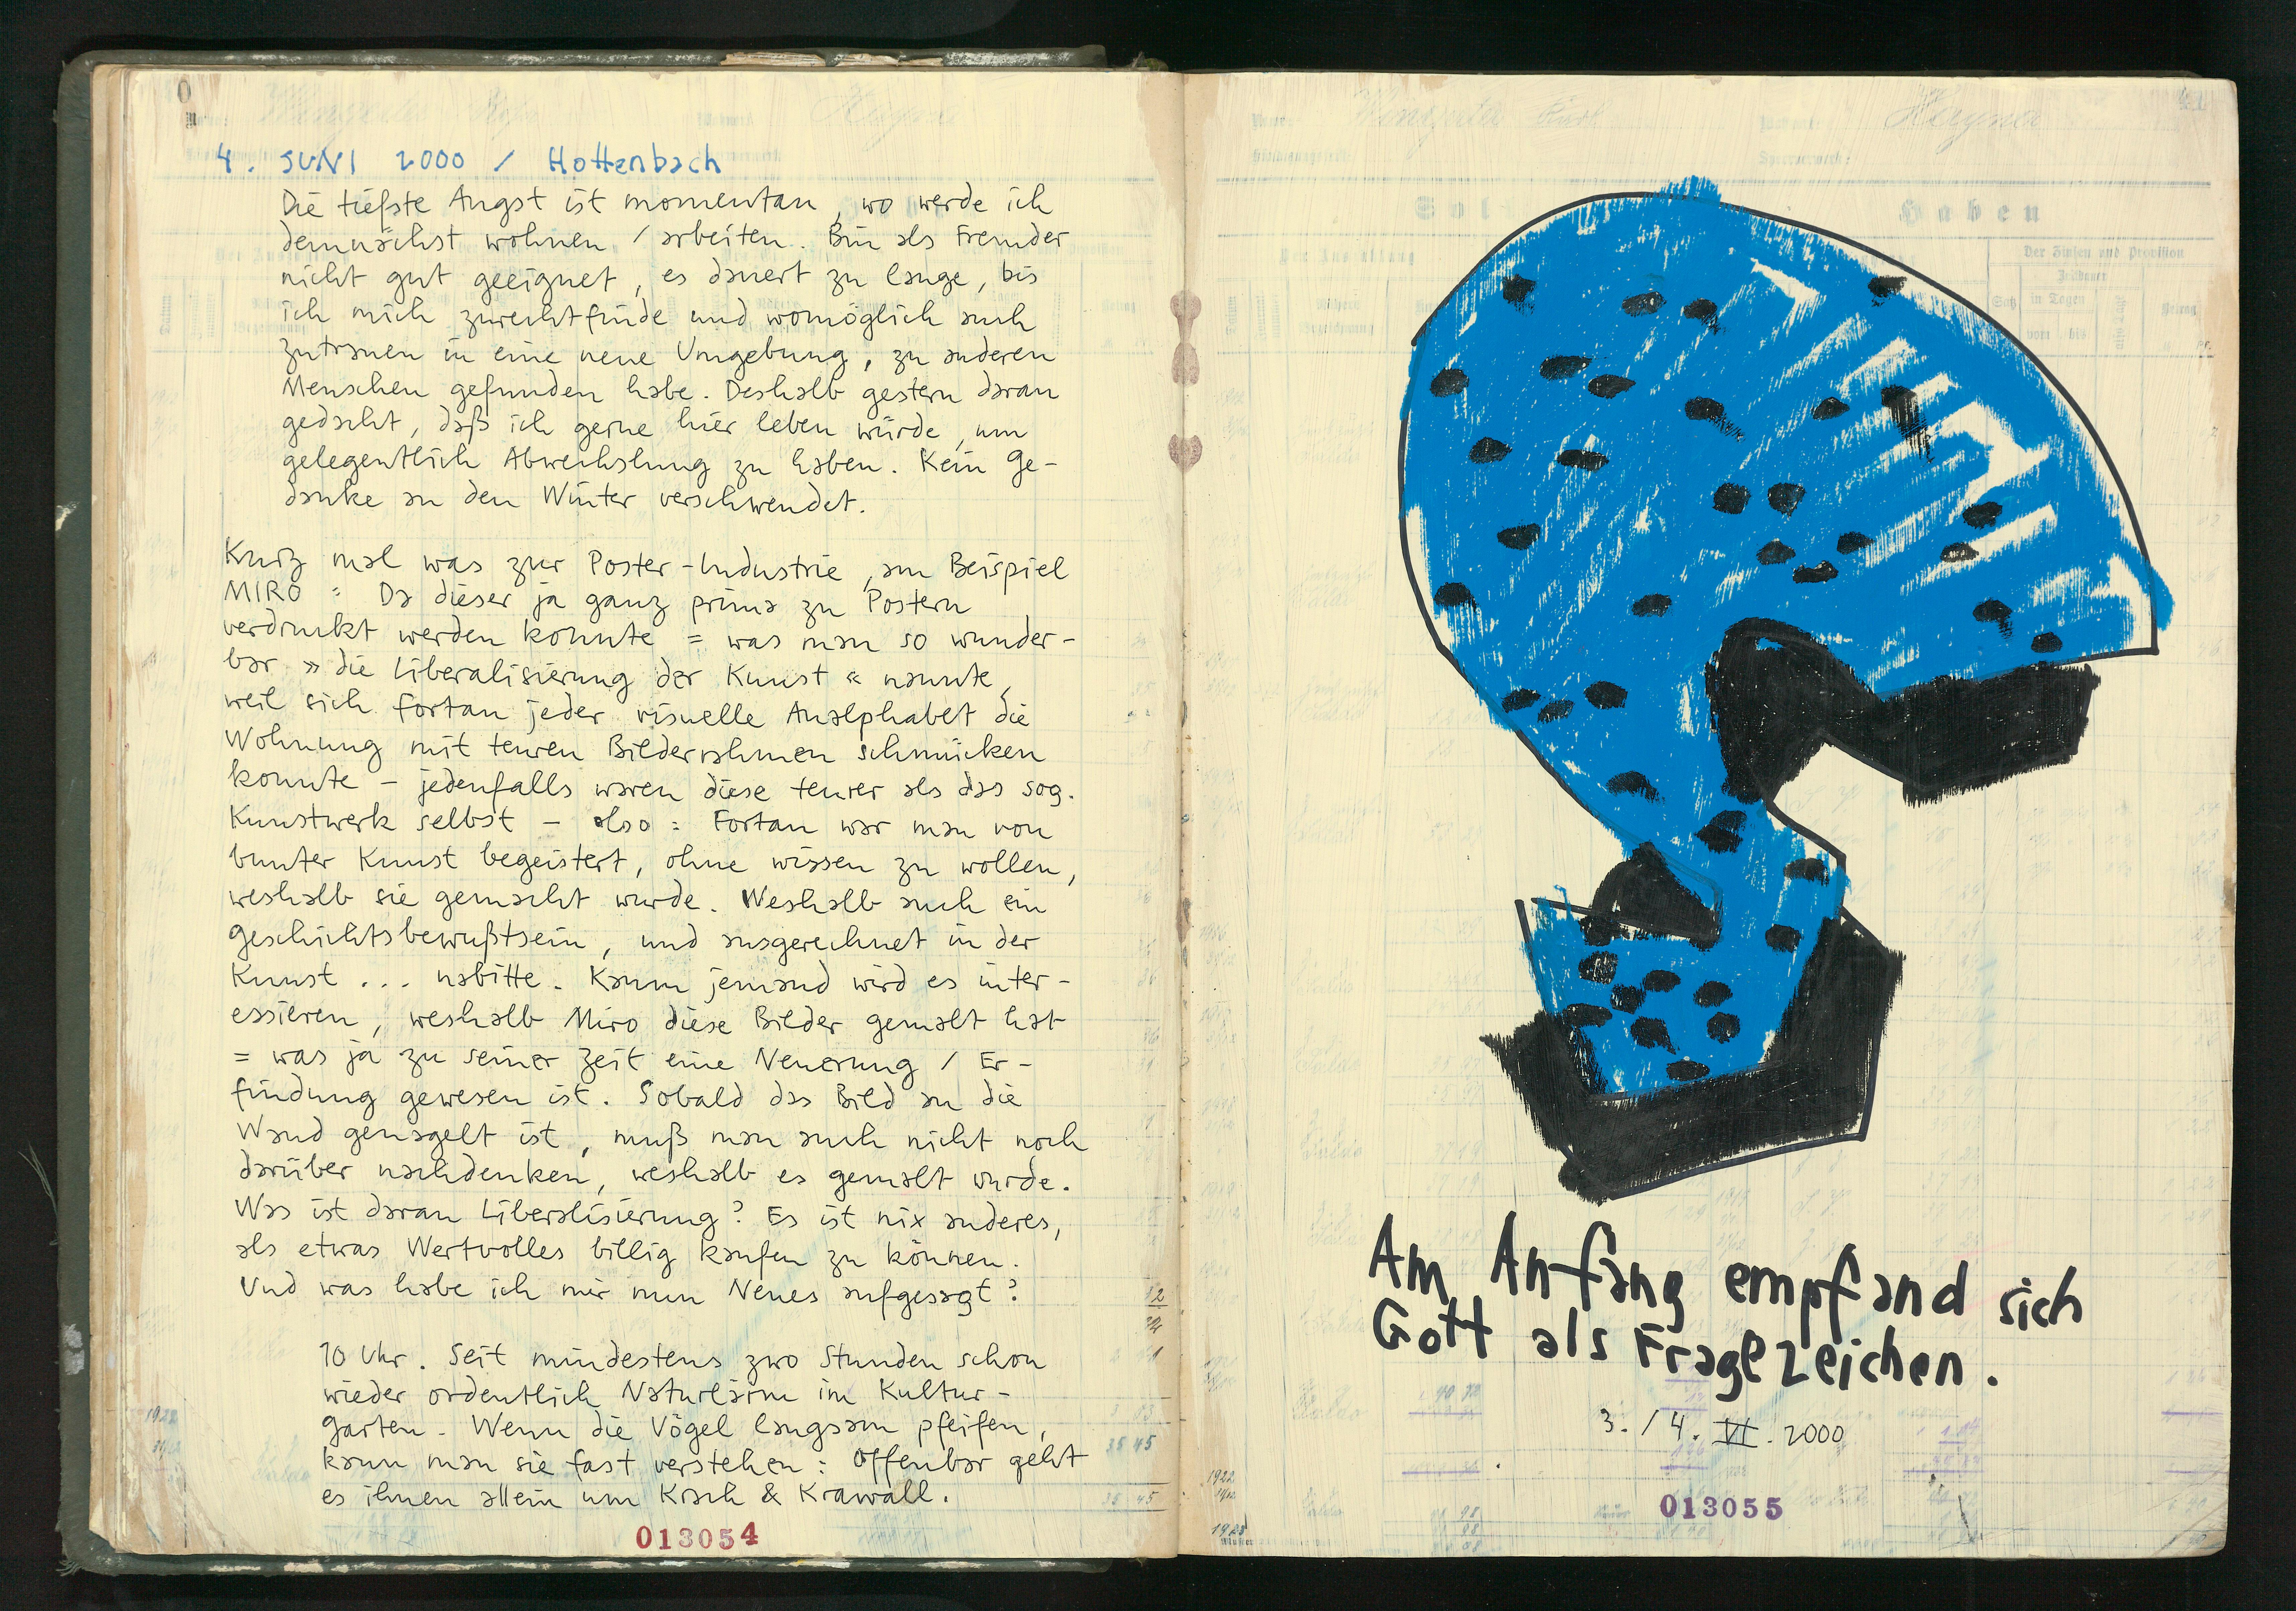 4. JUNI 2000 / Hottenbach
Die tiefste Angst ist momentan, wo werde ich
demnächst wohnen / arbeiten. Bin als Fremder
nicht gut geeignet, es dauert zu lange, bis
ich mich zurechtfinde und womöglich auch
Zutrauen in eine neue Umgebung, zu anderen
Menschen gefunden habe. Deshalb gestern daran
gedacht, daß ich gerne hier leben würde, um
gelegentlich Abwechslung zu haben. Kein Ge-
danke an den Winter verschwendet.
Kurz mal was zur Poster-Industrie, am Beispiel
MIRO = Da dieser ja ganz prima zu Postern
verdruckt werden konnte = was man so wunder-
bar »die Liberalisierung der Kunst« nannte,
weil sich fortan jeder visuelle Analphabet die
Wohnung mit teuren Bilderrahmen schmücken
konnte – jedenfalls waren diese teurer als das sog.
Kunstwerk selbst – also = Fortan war man von
bunter Kunst begeistert, ohne wissen zu wollen,
weshalb sie gemacht wurde. Weshalb auch ein
Geschichtsbewußtsein, und ausgerechnet in der
Kunst ... nabitte. Kaum jemand wird es inter-
essieren, weshalb Miro diese Bilder gemalt hat
= was ja zu seiner Zeit eine Neuerung / Er-
findung gewesen ist. Sobald das Bild an die
Wand genagelt ist, muß man auch nicht noch
darüber nachdenken, weshalb es gemalt wurde.
Was ist daran Liberalisierung? Es ist nix anderes,
als etwas Wertvolles billig kaufen zu können.
Und was habe ich mir nun Neues aufgesagt?
10 Uhr. Seit mindestens zwo Stunden schon
wieder ordentlich Naturlärm im Kultur-
garten. Wenn die Vögel langsam pfeifen,
kann man sie fast verstehen: Offenbar geht
es ihnen allein um Krach & Krawall.
013054
Soll Haben
Der Zinsen und Provision
in Tagen
vom bis
Am Anfang empfand sich
Gott als Fragezeichen.
3. / 4. VI. 2000
013055
1922
1923